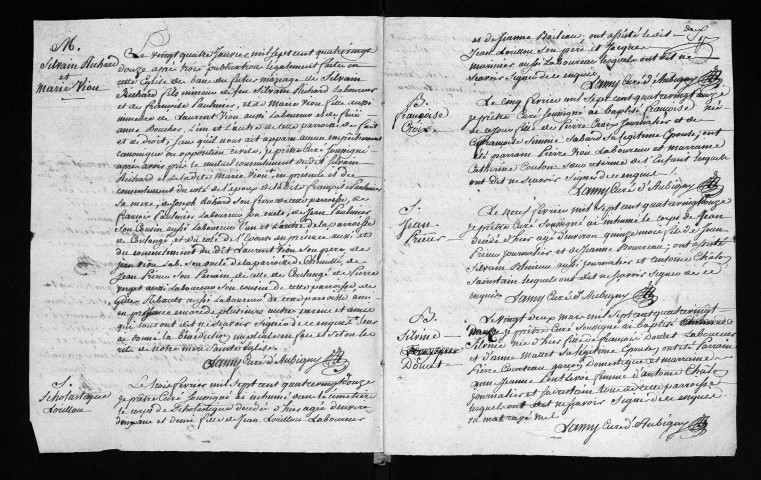 M.
Silvain Richard
et
Marie Viou
Le vingt quatre Janvier mil sept cent quatrevingt
douze après trois publications legalement faites en
cette Eglise des bans du futur mariage de Silvain
Richard fils mineur de feu Silvain Richard Laboureur
et de françoise Paulmier, et de Marie Viou fille aussi
mineure de Laurent Viou aussi Laboureur et de feüe
anne Boucher, L'un et L'autre de cette paroisse de fait
et de droit, sans qu'il nous ait apparu aucun empêchement
canonique ou opposition civile, je prêtre Curé soussigné
après avoir pris le mutuel consentement dudit Silvain
Richard et de ladite Marie Viou, en presence et du
consentement du coté de l'epoux de ladite françoise Paulmier
sa mere, de Joseph Richard son frere de cette paroisse, de
françois Paulmier Laboureur son oncle, de Jean Paulmier
son Cousin aussi Laboureur L'un et L'autre de la paroisse
de Coulangé et du coté de l'Epouse en presence aussi et
du consentement dudit Laurent Viou son pere, de
Jean Viou Lab. son oncle de la paroisse de
Jean Prieur son Parrain de celle de Coulangé de Pierre
aussi Laboureur son cousin de cette paroisse de
Gilles aussi Laboureur de cette paroisse, et
en presence encore de plusieurs autres parens et amis
qui tous ont dit ne sçavoir signer de ce enquis, leur
ai donné la bénédiction nuptiale en face et selon le
rite de Notre mere Sainte Eglise.
Lamy Curé d'Aubigny
S.
Scholastique
Lorillou
Le trois fevrier mil sept cent quatrevingt douze
je prêtre Curé soussigné ai inhumé dans le cimetiere
le corps de Scholastique decedée d'hier agée d'environ
un an et demi fille de Jean Lorillou Laboureur
et de Jeanne Boiteau, ont assisté ledit
Jean Lorillou son pere et Jacques
monnier aussi Laboureur lesquels ont dit ne
sçavoir signer de ce enquis.
Lamy Curé d'Aubigny
B.
françoise
Croix
Le cinq fevrier mil sept cent quatrevingt douze
je prêtre Curé soussigné ai baptisé françoise née
de ce jour fille de Pierre Croix Journalier et
de Simone Sabard sa legitime Epouse; ont
été parrain Pierre Viou Laboureur et marraine
Catherine Coulon de l'enfant lesquels
ont dit ne sçavoir signer de ce enquis.
Lamy Curé d'Aubigny
S.
Jean
Prieur
Le neuf fevrier mil sept cent quatrevingt douze
je prêtre Curé soussigné ai inhumé le corps de Jean
decedé d'hier agé d'environ quinze mois fils de Jean
Prieur journalier et de Jeanne Bourreau; ont assisté
Silvain aussi journalier et antoine Chalon
Sacristain lesquels ont dit ne sçavoir signer de ce
enquis. Lamy Curé d'Aubigny
B.
Silvine
Douet
Le vingt deux mars mil sept cent quatrevingt
douze je prêtre Curé soussigné ai baptisé
Silvine née d'hier fille de françois Douet Laboureur
et d'anne Massé sa legitime Epouse; ont été Parrain
Pierre Courteau garçon Domestique et marraine
Jeanne Pontlevoi femme d'antoine Chalon
journalier et sacristain tous de cette paroisse
lesquels ont dit ne sçavoir signer de ce enquis.
Lamy Curé d'Aubigny